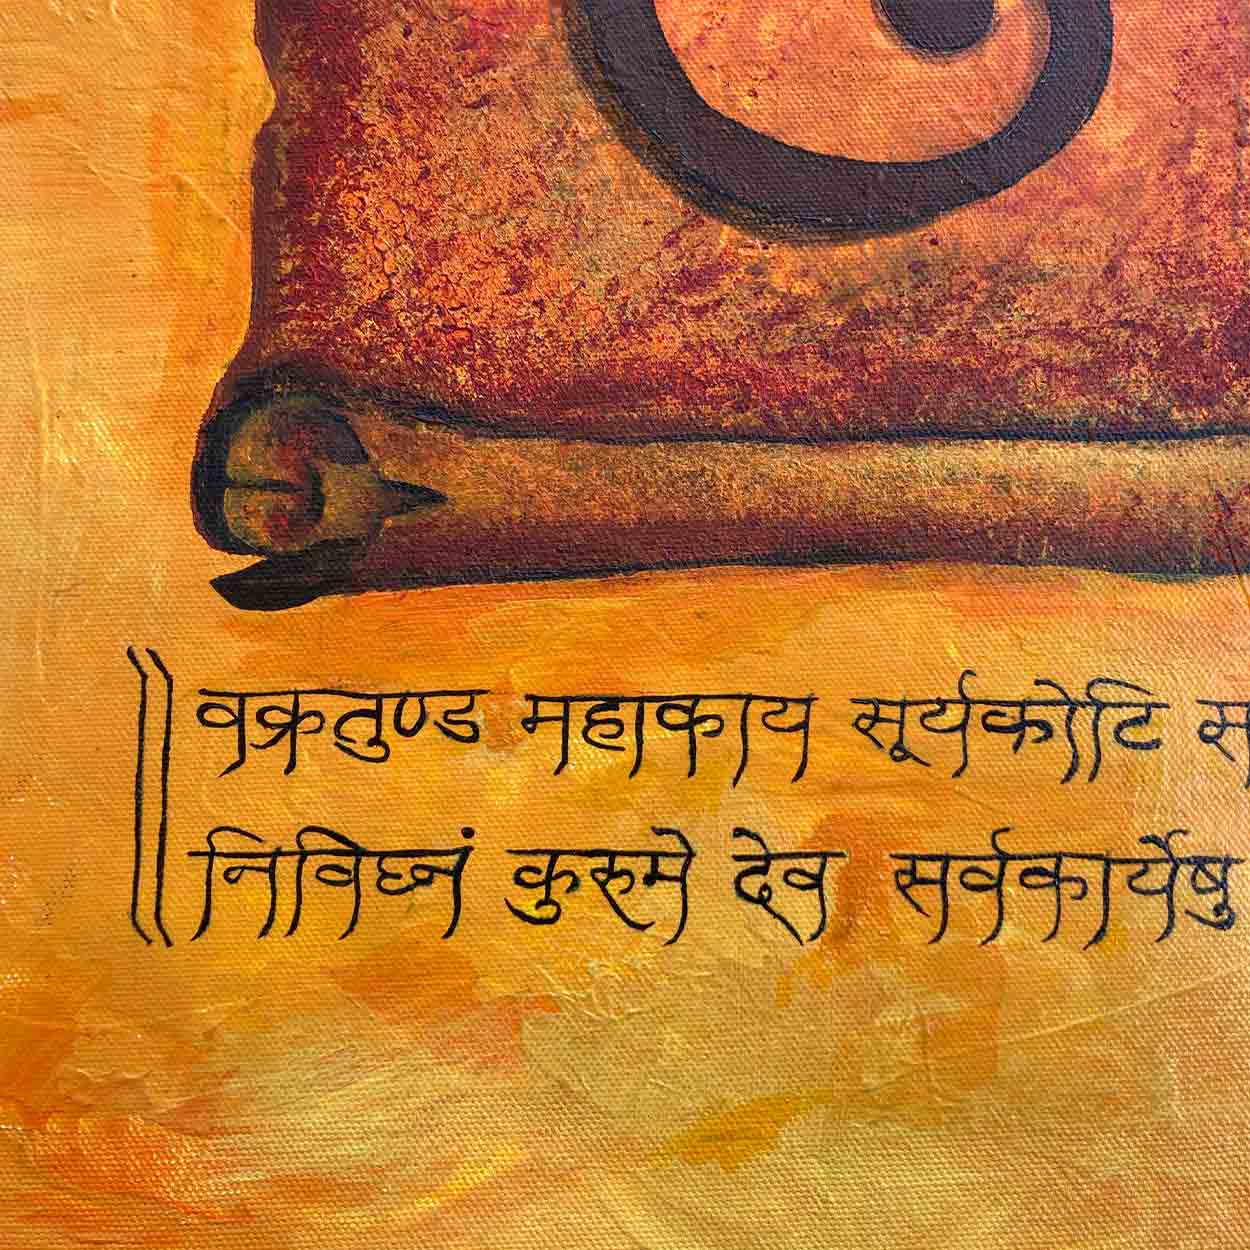 ॥ वक्रतुण्ड महाकाय सूर्यकोटि
निविघ्नं कुरुमे देव सर्वकार्येषु